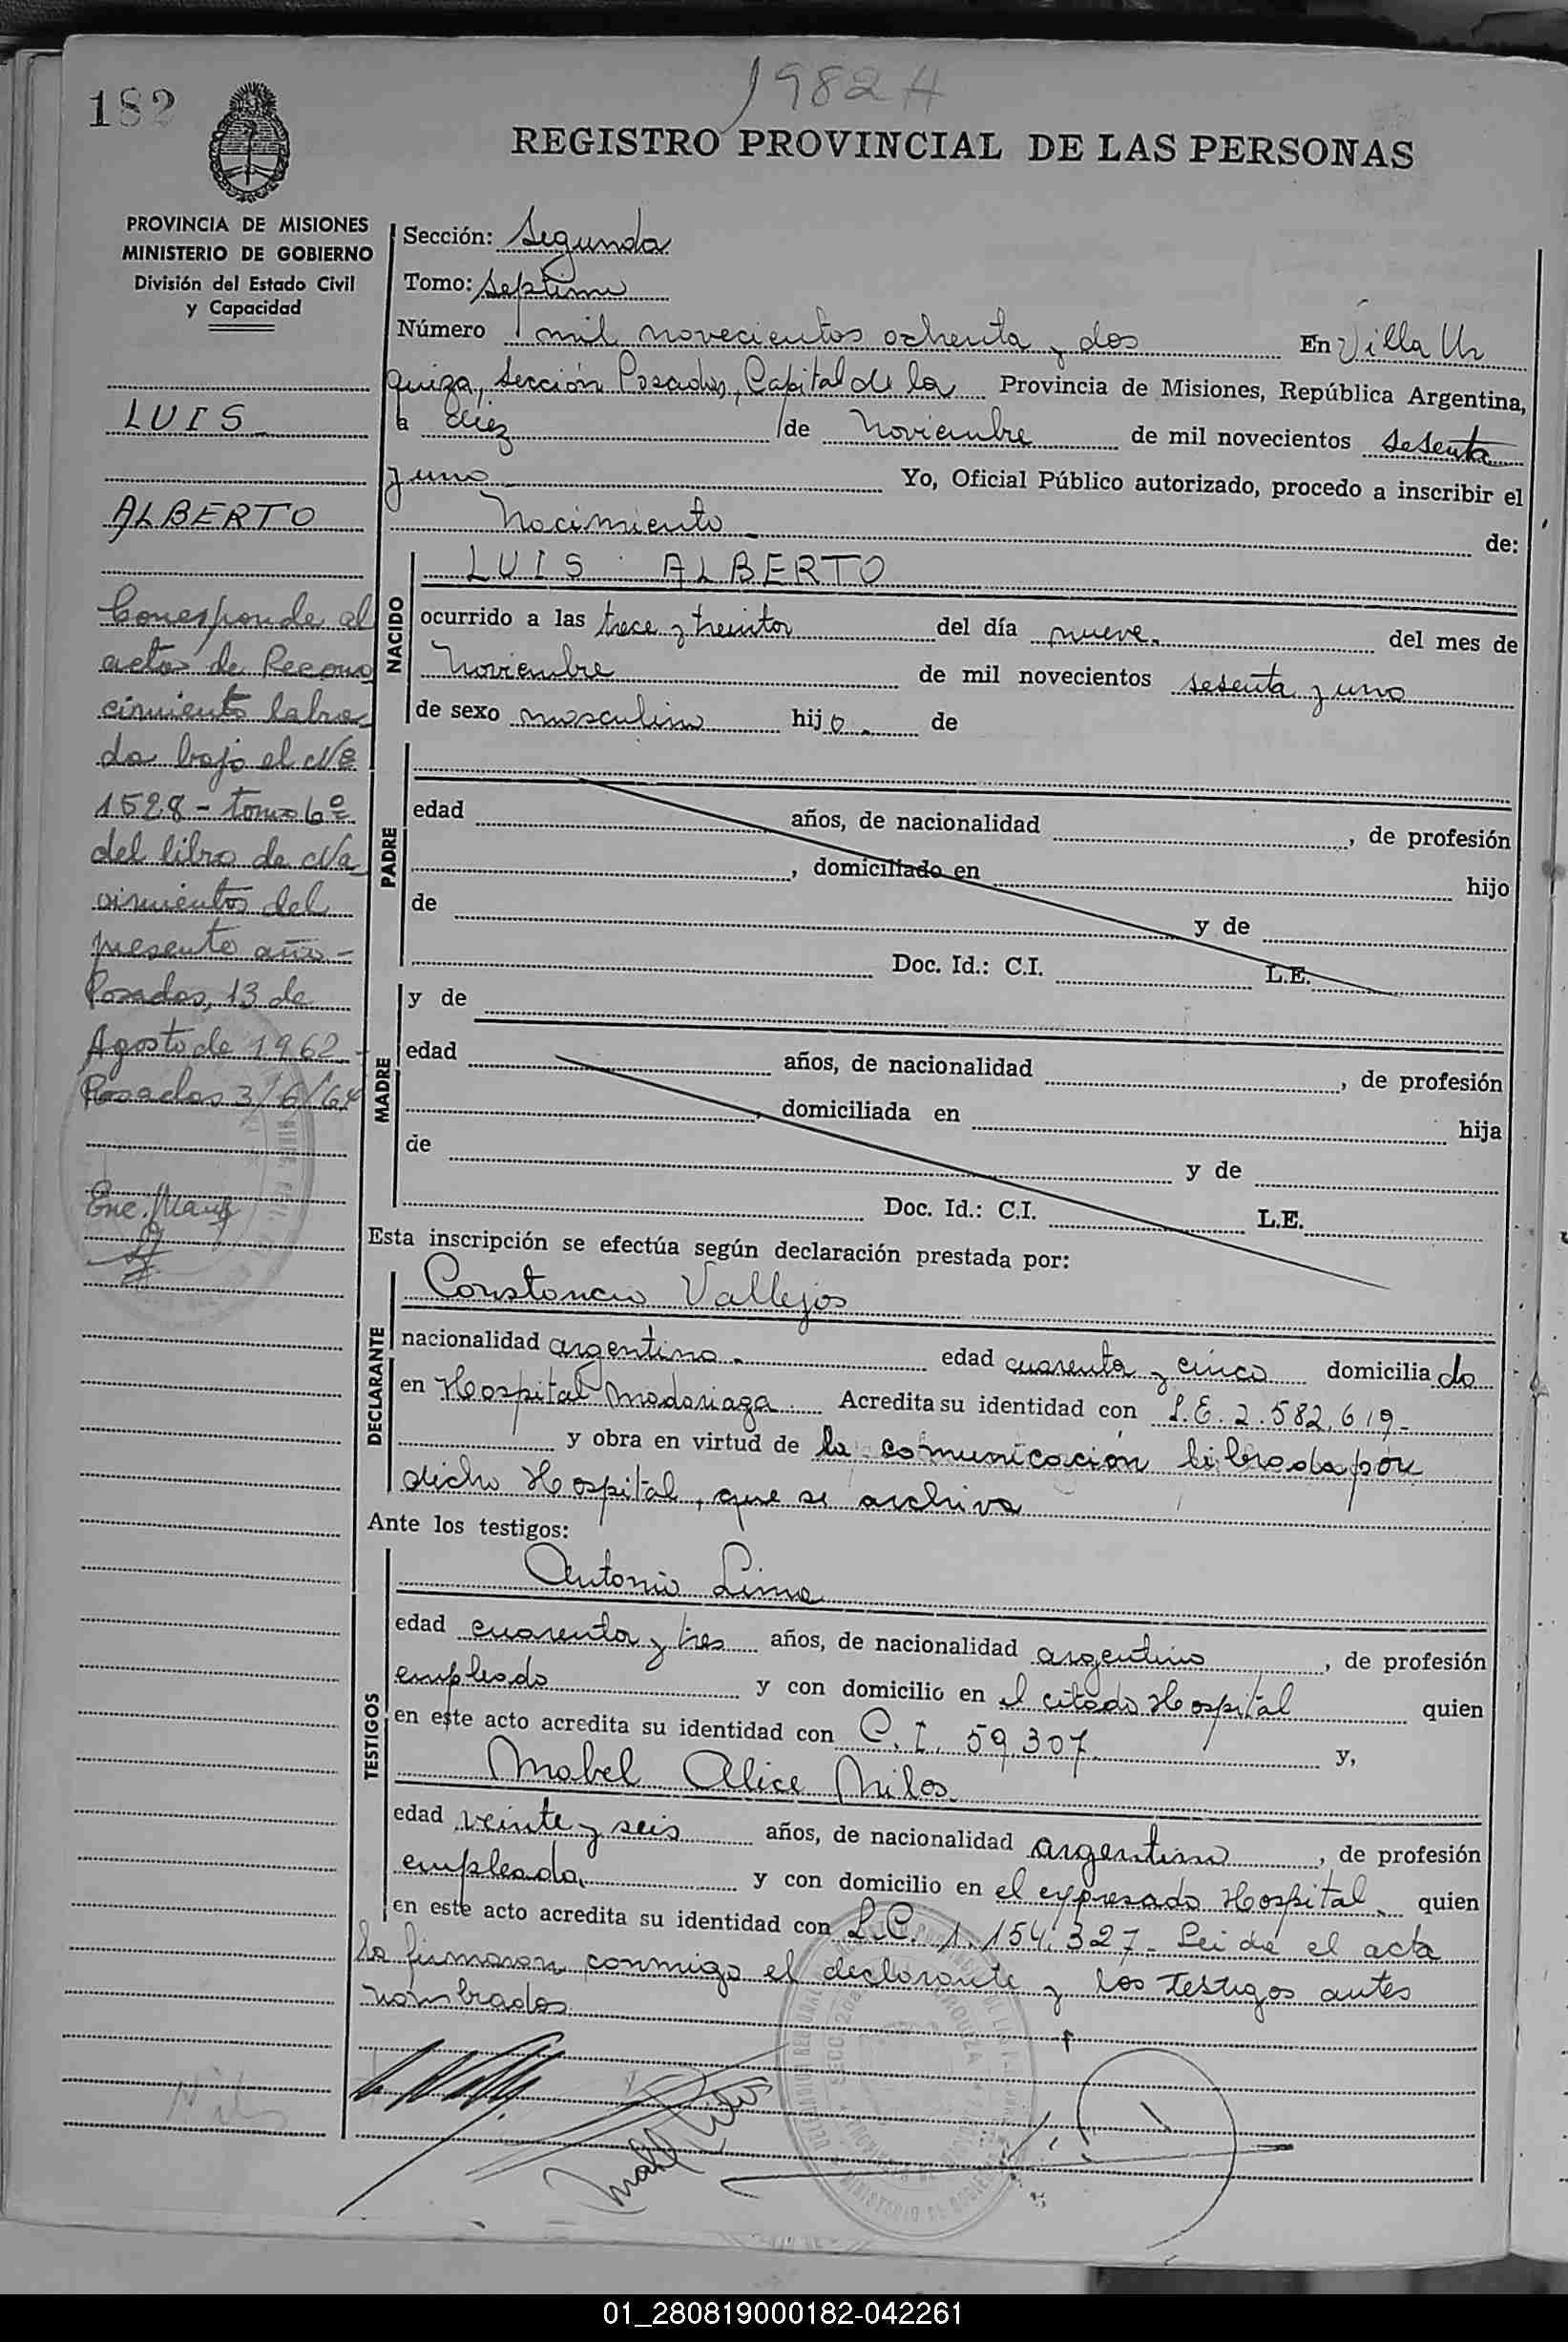 1982 A
182
REGISTRO PROVINCIAL DE LAS PERSONAS
PROVINCIA DE MISIONES
MINISTERIO DE GOBIERNO
División del Estado Civil
y Capacidad
LUIS
ALBERTO
Corresponde al
acta de Recono
cimiento labra
da bajo el Nº
1528 - tomo 6º
del libro de Na
cimientos del
presente año -
Posadas, 13 de
Agosto de 1962 -
Posadas 3/6/64
Sección: Segunda
Tomo: Septimo
Número mil novecientos ochenta y dos En Villa Ur
quiza, Sección Posadas, Capital de la Provincia de Misiones, República Argentina,
a diez de Noviembre de mil novecientos sesenta
y uno Yo, Oficial Público autorizado, procedo a inscribir el
Nacimiento de:
NACIDO
LUIS ALBERTO
ocurrido a las trece y treinta del día nueve del mes de
Noviembre de mil novecientos sesenta y uno
de sexo masculino hijo de
PADRE
edad años, de nacionalidad , de profesión
, domiciliado en hijo
de y de
Doc. Id.: C.I. L.E.
MADRE
y de
edad años, de nacionalidad , de profesión
, domiciliada en hija
de y de
Doc. Id.: C.I. L.E.
Esta inscripción se efectúa según declaración prestada por:
DECLARANTE
Constancio Vallejos
nacionalidad argentino edad cuarenta y cinco domiciliado
en Hospital Madariaga Acredita su identidad con L.E. 2.582.619-
y obra en virtud de la comunicación librada por
dicho Hospital, que se archiva
Ante los testigos:
TESTIGOS
Antonio Lima
edad cuarenta y tres años, de nacionalidad argentino , de profesión
empleado y con domicilio en el citado Hospital quien
en este acto acredita su identidad con C.I. 59.307 y,
Mabel Alice Milos
edad veinte y seis años, de nacionalidad argentina , de profesión
empleada y con domicilio en el expresado Hospital quien
en este acto acredita su identidad con L.C. 1.154.327- Leida el acta
la firmaron conmigo el declarante y los testigos antes
nombrados
01_280819000182-042261